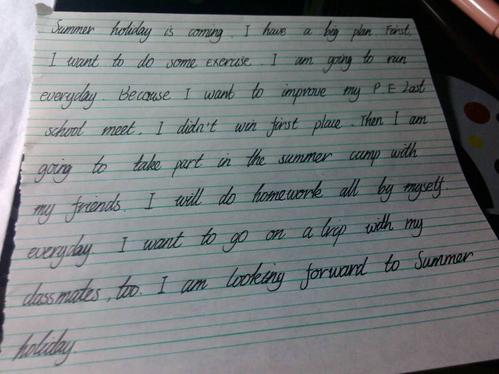 Summer holiday is coming. I have a big plan. First,
I want to do some exercise. I am going to run
everyday. Because I want to improve my P E. Last
school meet, I didn't win first place. Then I am
going to take part in the summer camp with
my friends. I will do homework all by myself.
everyday. I want to go on a trip with my
classmates, too. I am looking forward to Summer
holiday.